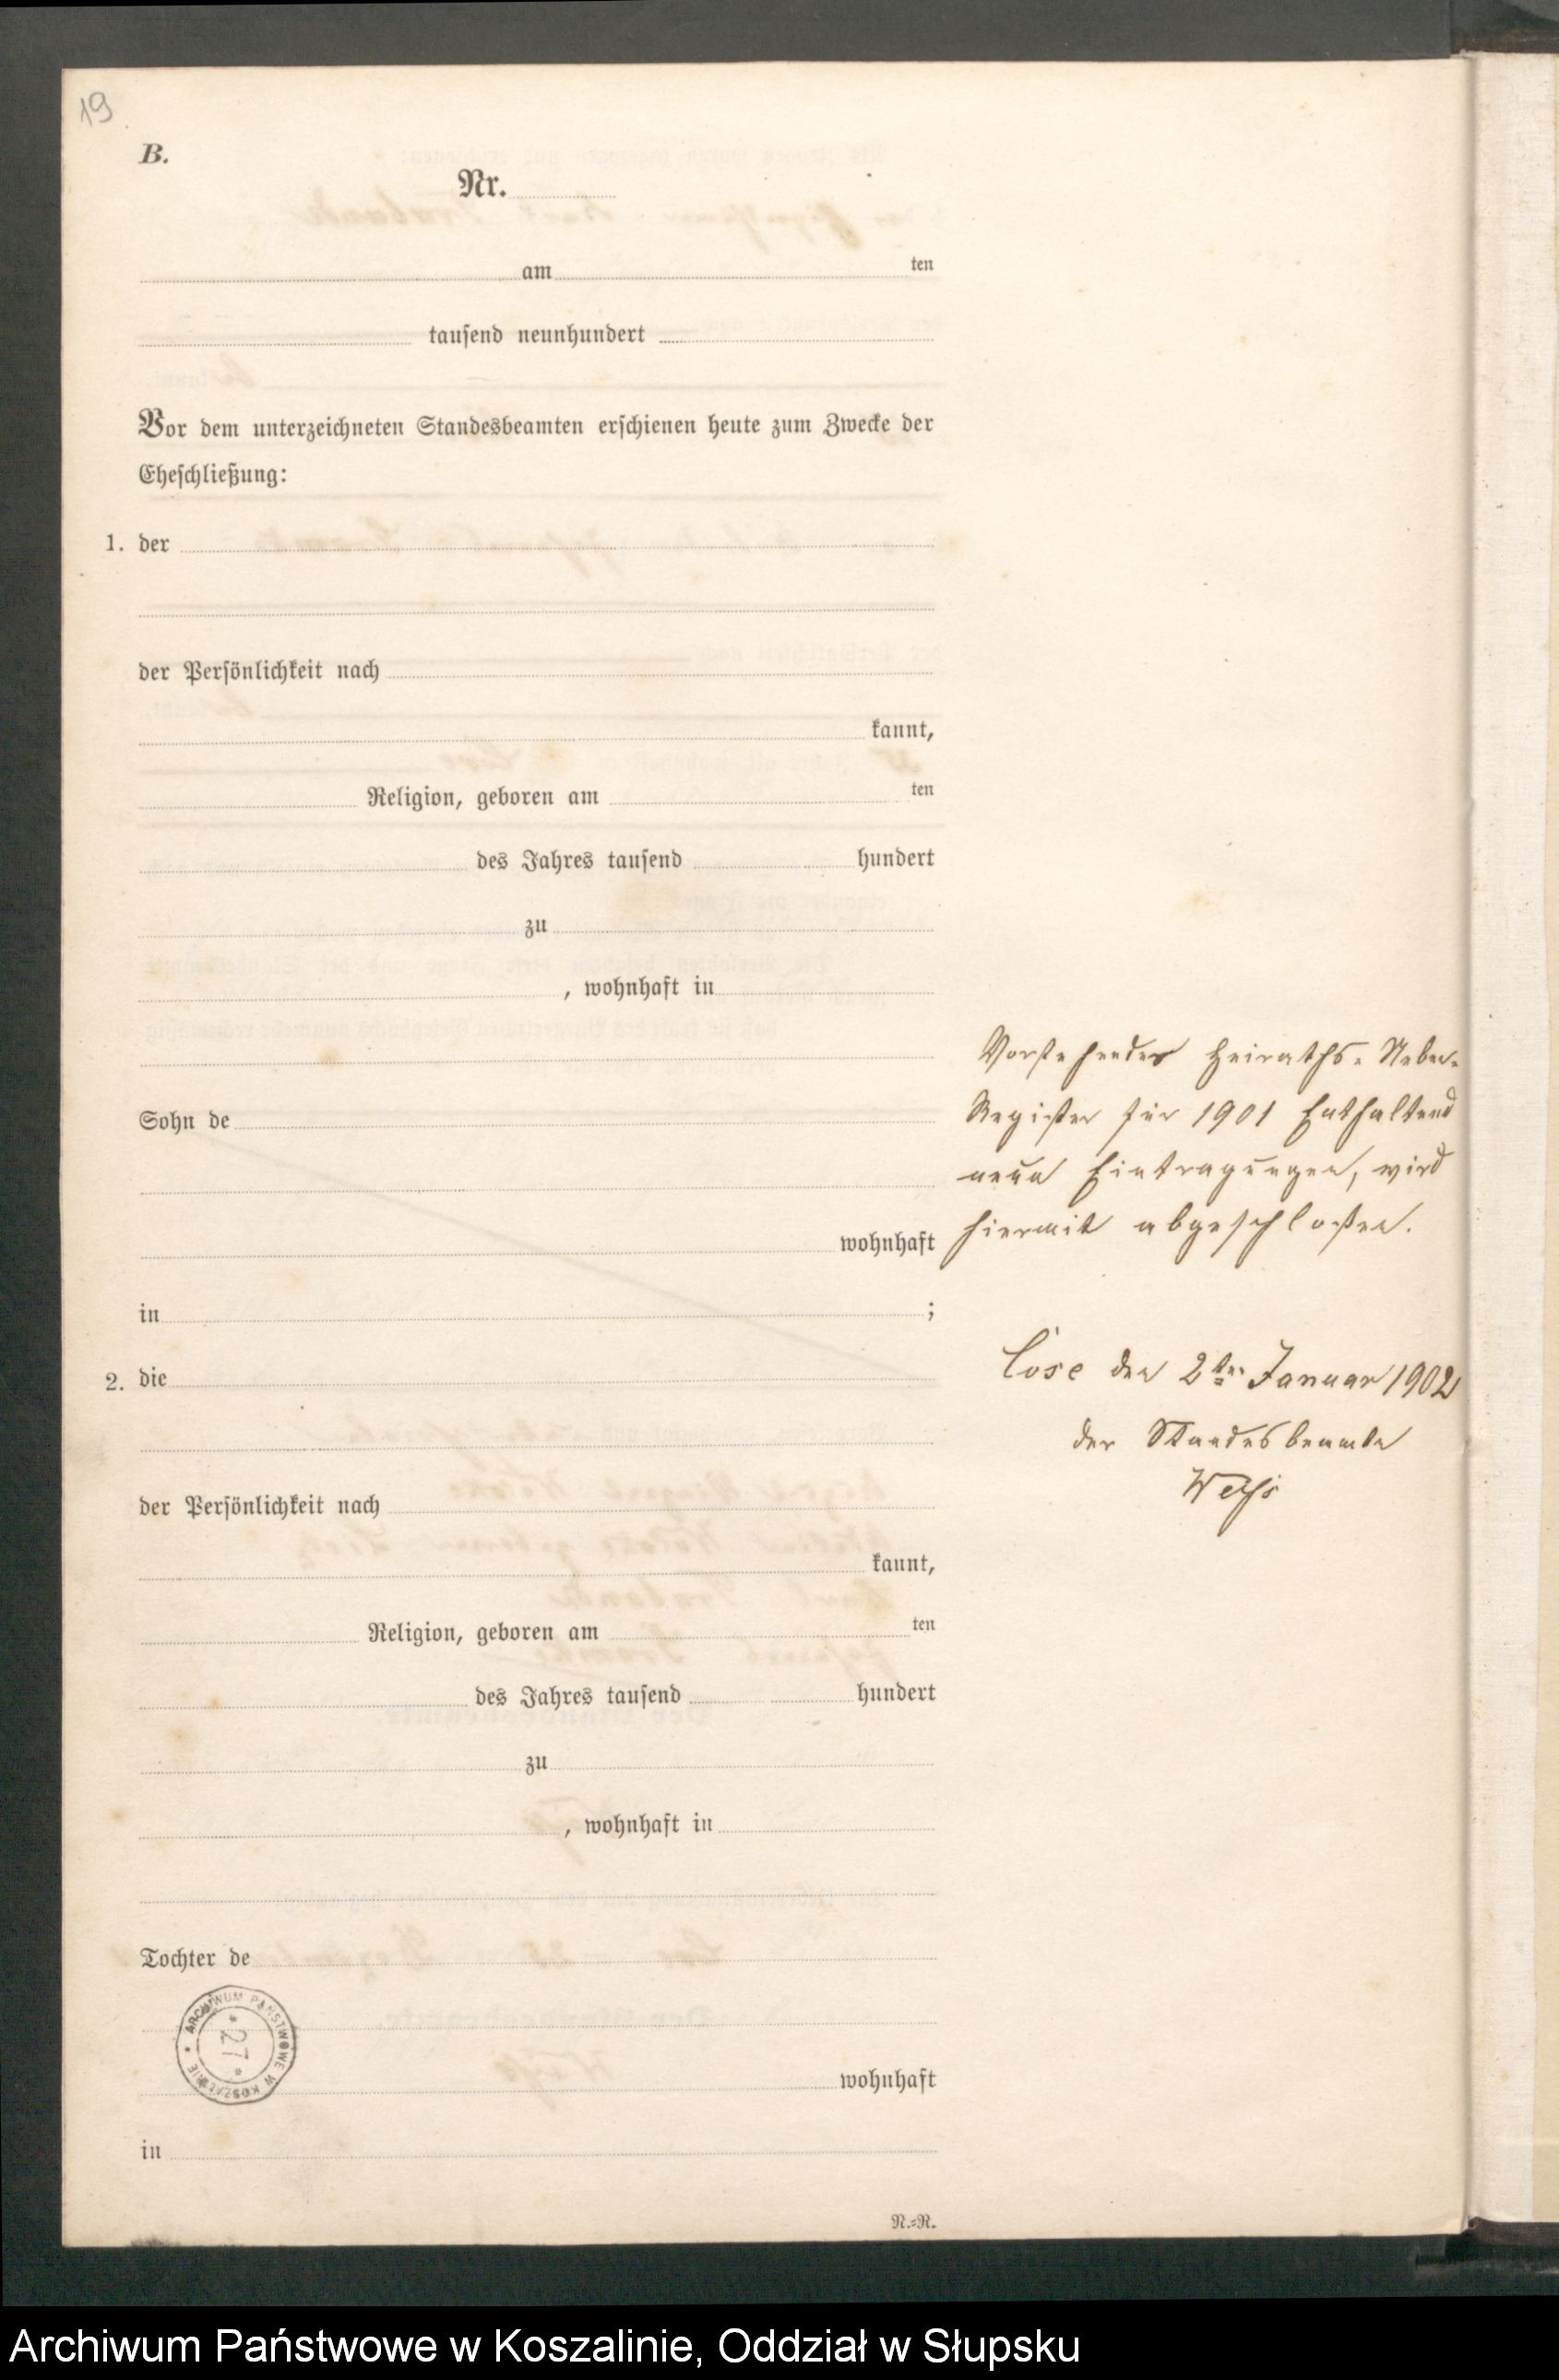 19
B.
Nr.
am ten
tausend neunhundert
Vor dem unterzeichneten Standesbeamten erschienen heute zum Zwecke der
Eheschließung:
1. der
der Persönlichkeit nach
kannt,
Religion, geboren am ten
des Jahres tausend hundert
zu
, wohnhaft in
Sohn de
wohnhaft
in ;
2. die
der Persönlichkeit nach
kannt,
Religion, geboren am ten
des Jahres tausend hundert
zu
, wohnhaft in
Tochter de
wohnhaft
in
N.=R.
Vorstehendes Heiraths-Neben-
Register für 1901 Enthaltend
neun Eintragungen, wird
hiermit abgeschloßen.
Lose den 2ten Januar 1902
der Standesbeamte
ARCHIWUM PAŃSTWOWE W KOSZALINIE
27
Archiwum Państwowe w Koszalinie, Oddział w Słupsku